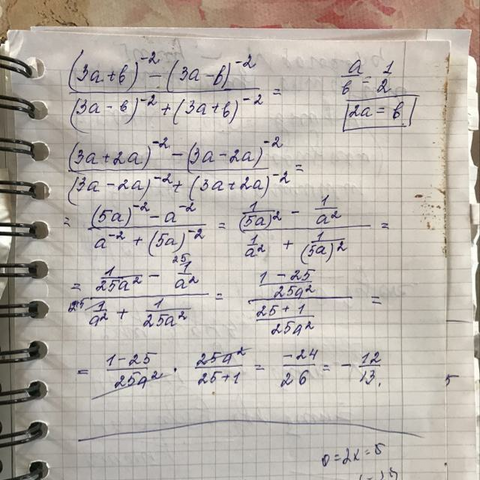 ((3a+b)^-2 - (3a-b)^-2) / ((3a-b)^-2 + (3a+b)^-2) =
a/b = 1/2
2a = b
((3a+2a)^-2 - (3a-2a)^-2) / ((3a-2a)^-2 + (3a+2a)^-2) =
= ((5a)^-2 - a^-2) / (a^-2 + (5a)^-2) = (1/(5a)^2 - 1/a^2) / (1/a^2 + 1/(5a)^2) =
= (1/25a^2 - 25 1/a^2) / (25 1/a^2 + 1/25a^2) = ((1-25)/25a^2) / ((25+1)/25a^2) =
= (1-25)/25a^2 · 25a^2/(25+1) = -24/26 = -12/13.
5
0=2x=5